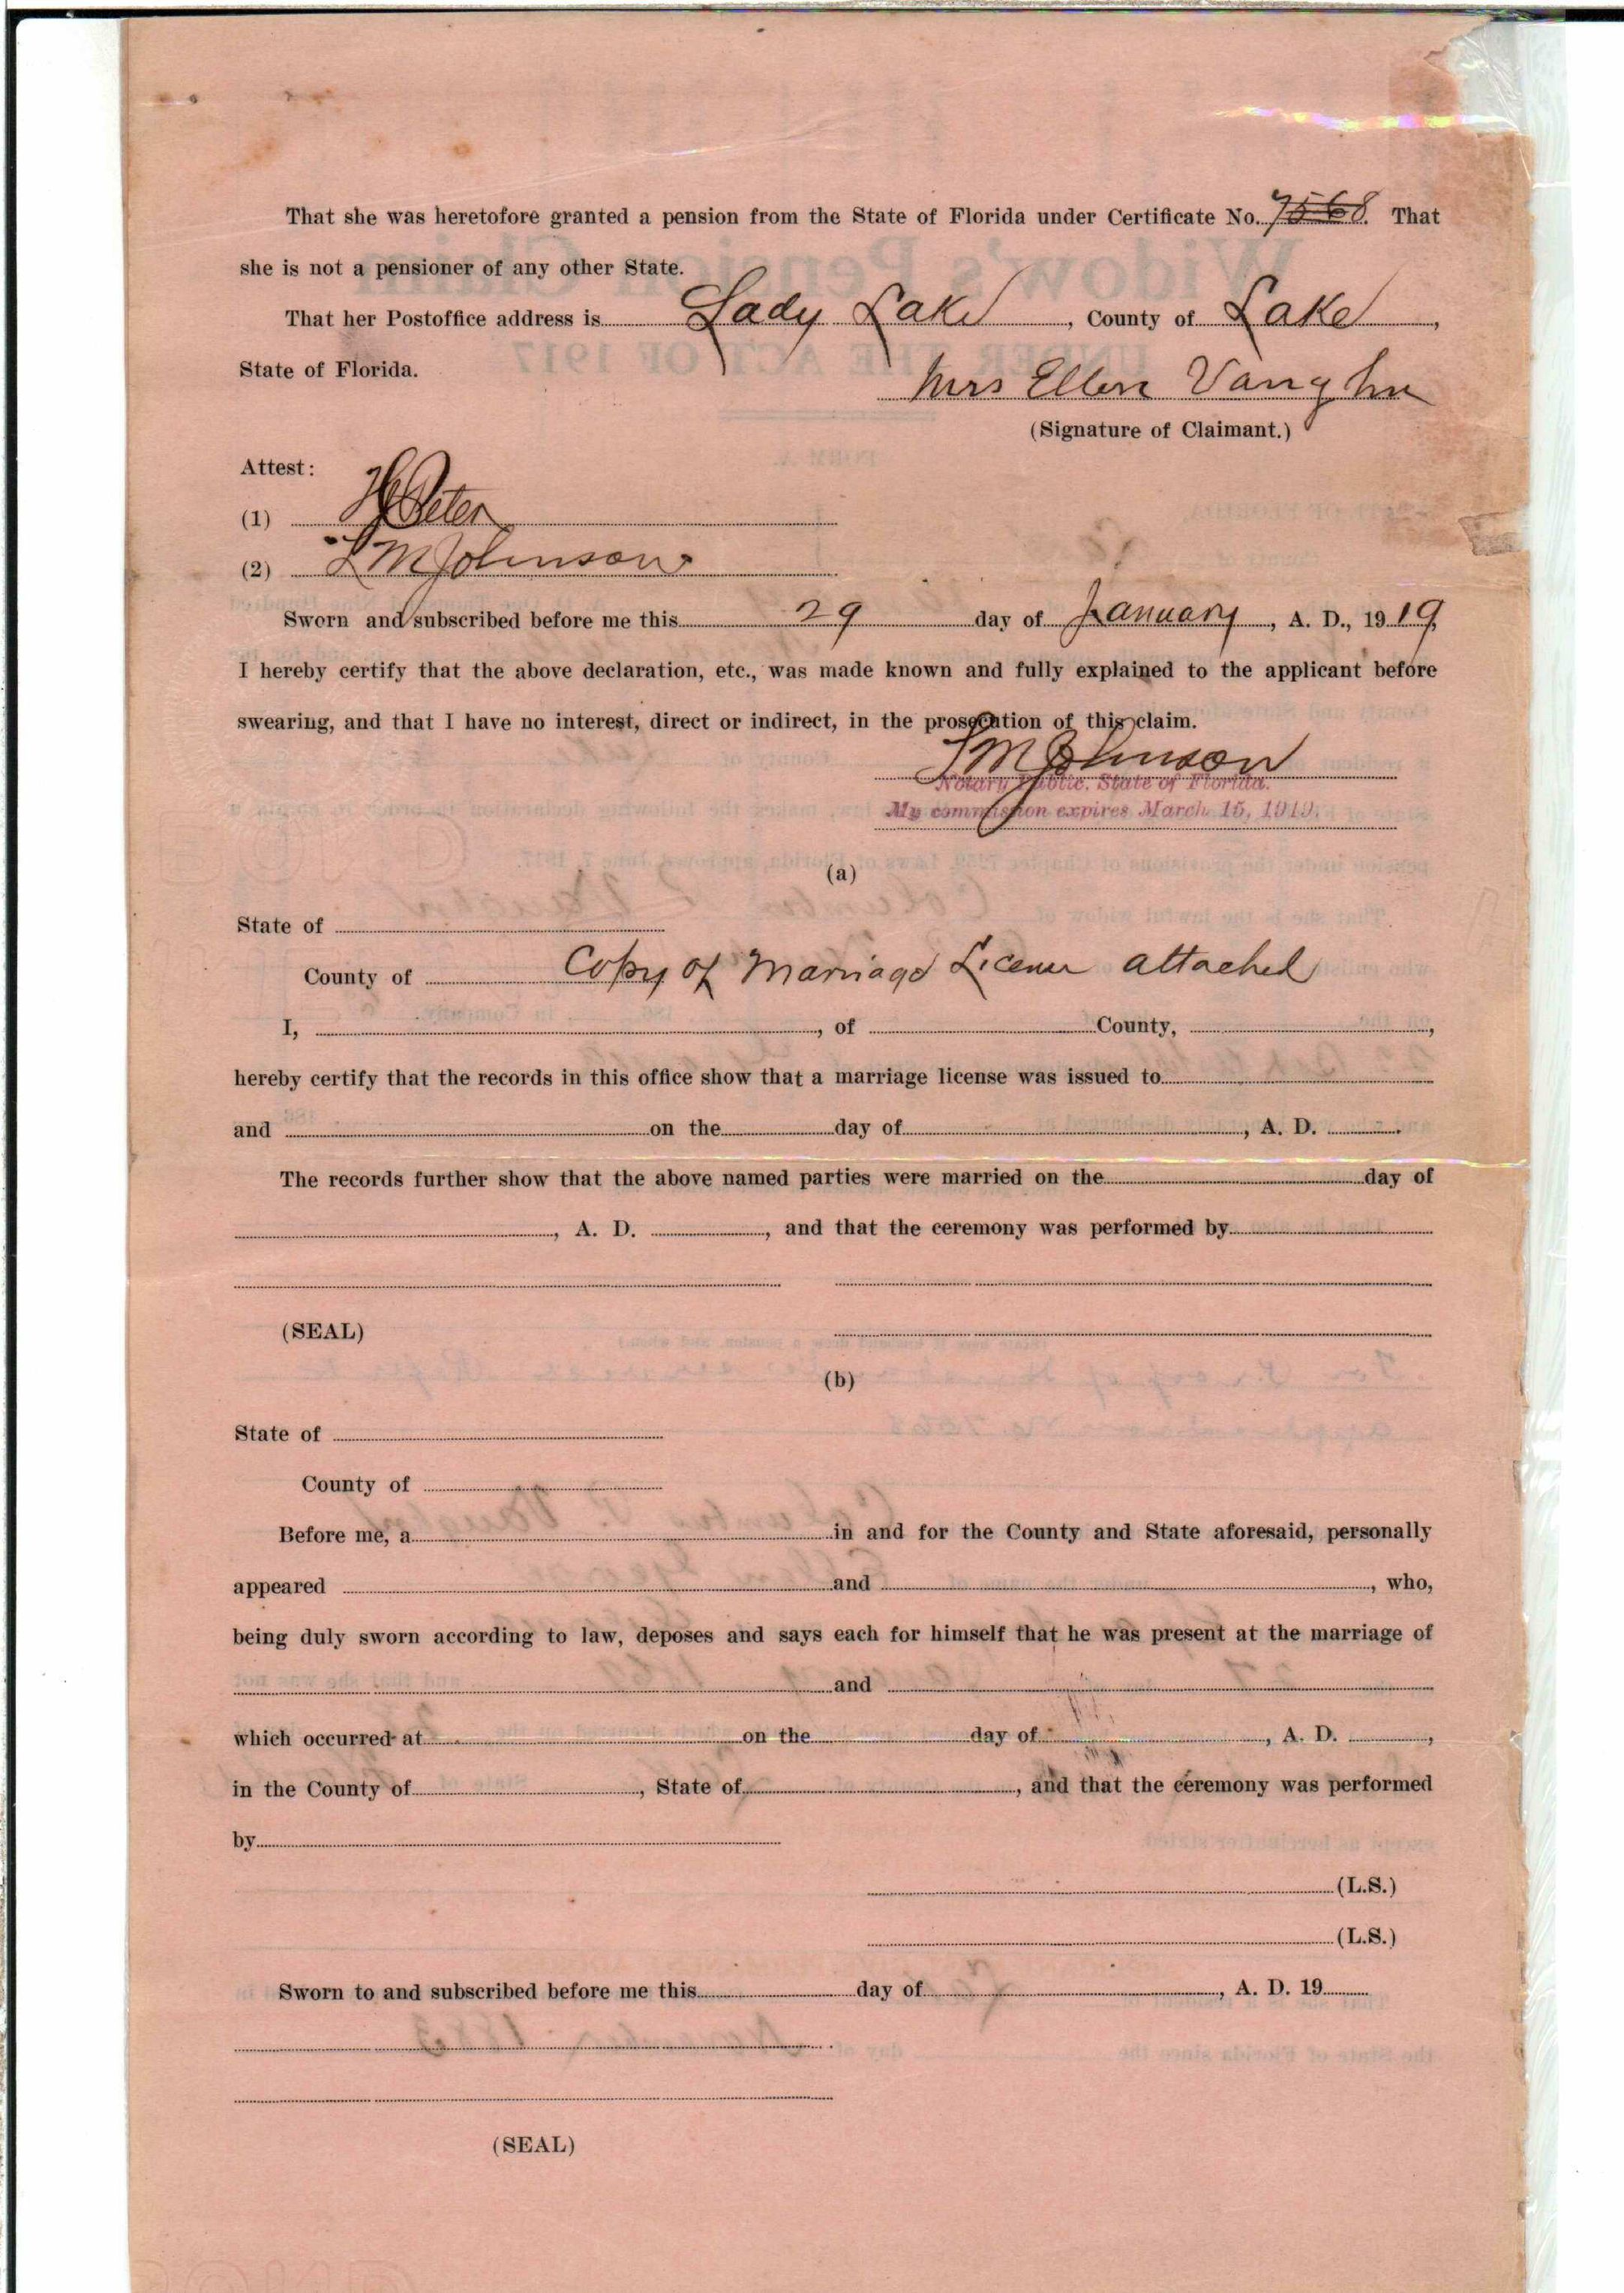 That she was heretofore granted a pension from the State of Florida under Certificate No. 7568. That
she is not a pensioner of any other State.
That her Postoffice address is Lady Lake, County of Lake,
State of Florida.
Mrs Ellen Vaughn
(Signature of Claimant.)
Attest:
(1) Peter
(2) Johnson
Sworn and subscribed before me this 29 day of January, A. D., 1919,
I hereby certify that the above declaration, etc., was made known and fully explained to the applicant before
swearing, and that I have no interest, direct or indirect, in the prosecution of this claim.
Johnson
Notary Public, State of Florida.
My commission expires March 15, 1919.
(a)
State of
County of Copy of Marriage License attached
I, , of County, ,
hereby certify that the records in this office show that a marriage license was issued to
and on the day of , A. D. .
The records further show that the above named parties were married on the day of
, A. D. , and that the ceremony was performed by
(SEAL)
(b)
State of
County of
Before me, a in and for the County and State aforesaid, personally
appeared and , who,
being duly sworn according to law, deposes and says each for himself that he was present at the marriage of
and
which occurred at on the day of , A. D. ,
in the County of , State of , and that the ceremony was performed
by
(L.S.)
(L.S.)
Sworn to and subscribed before me this day of , A. D. 19
(SEAL)